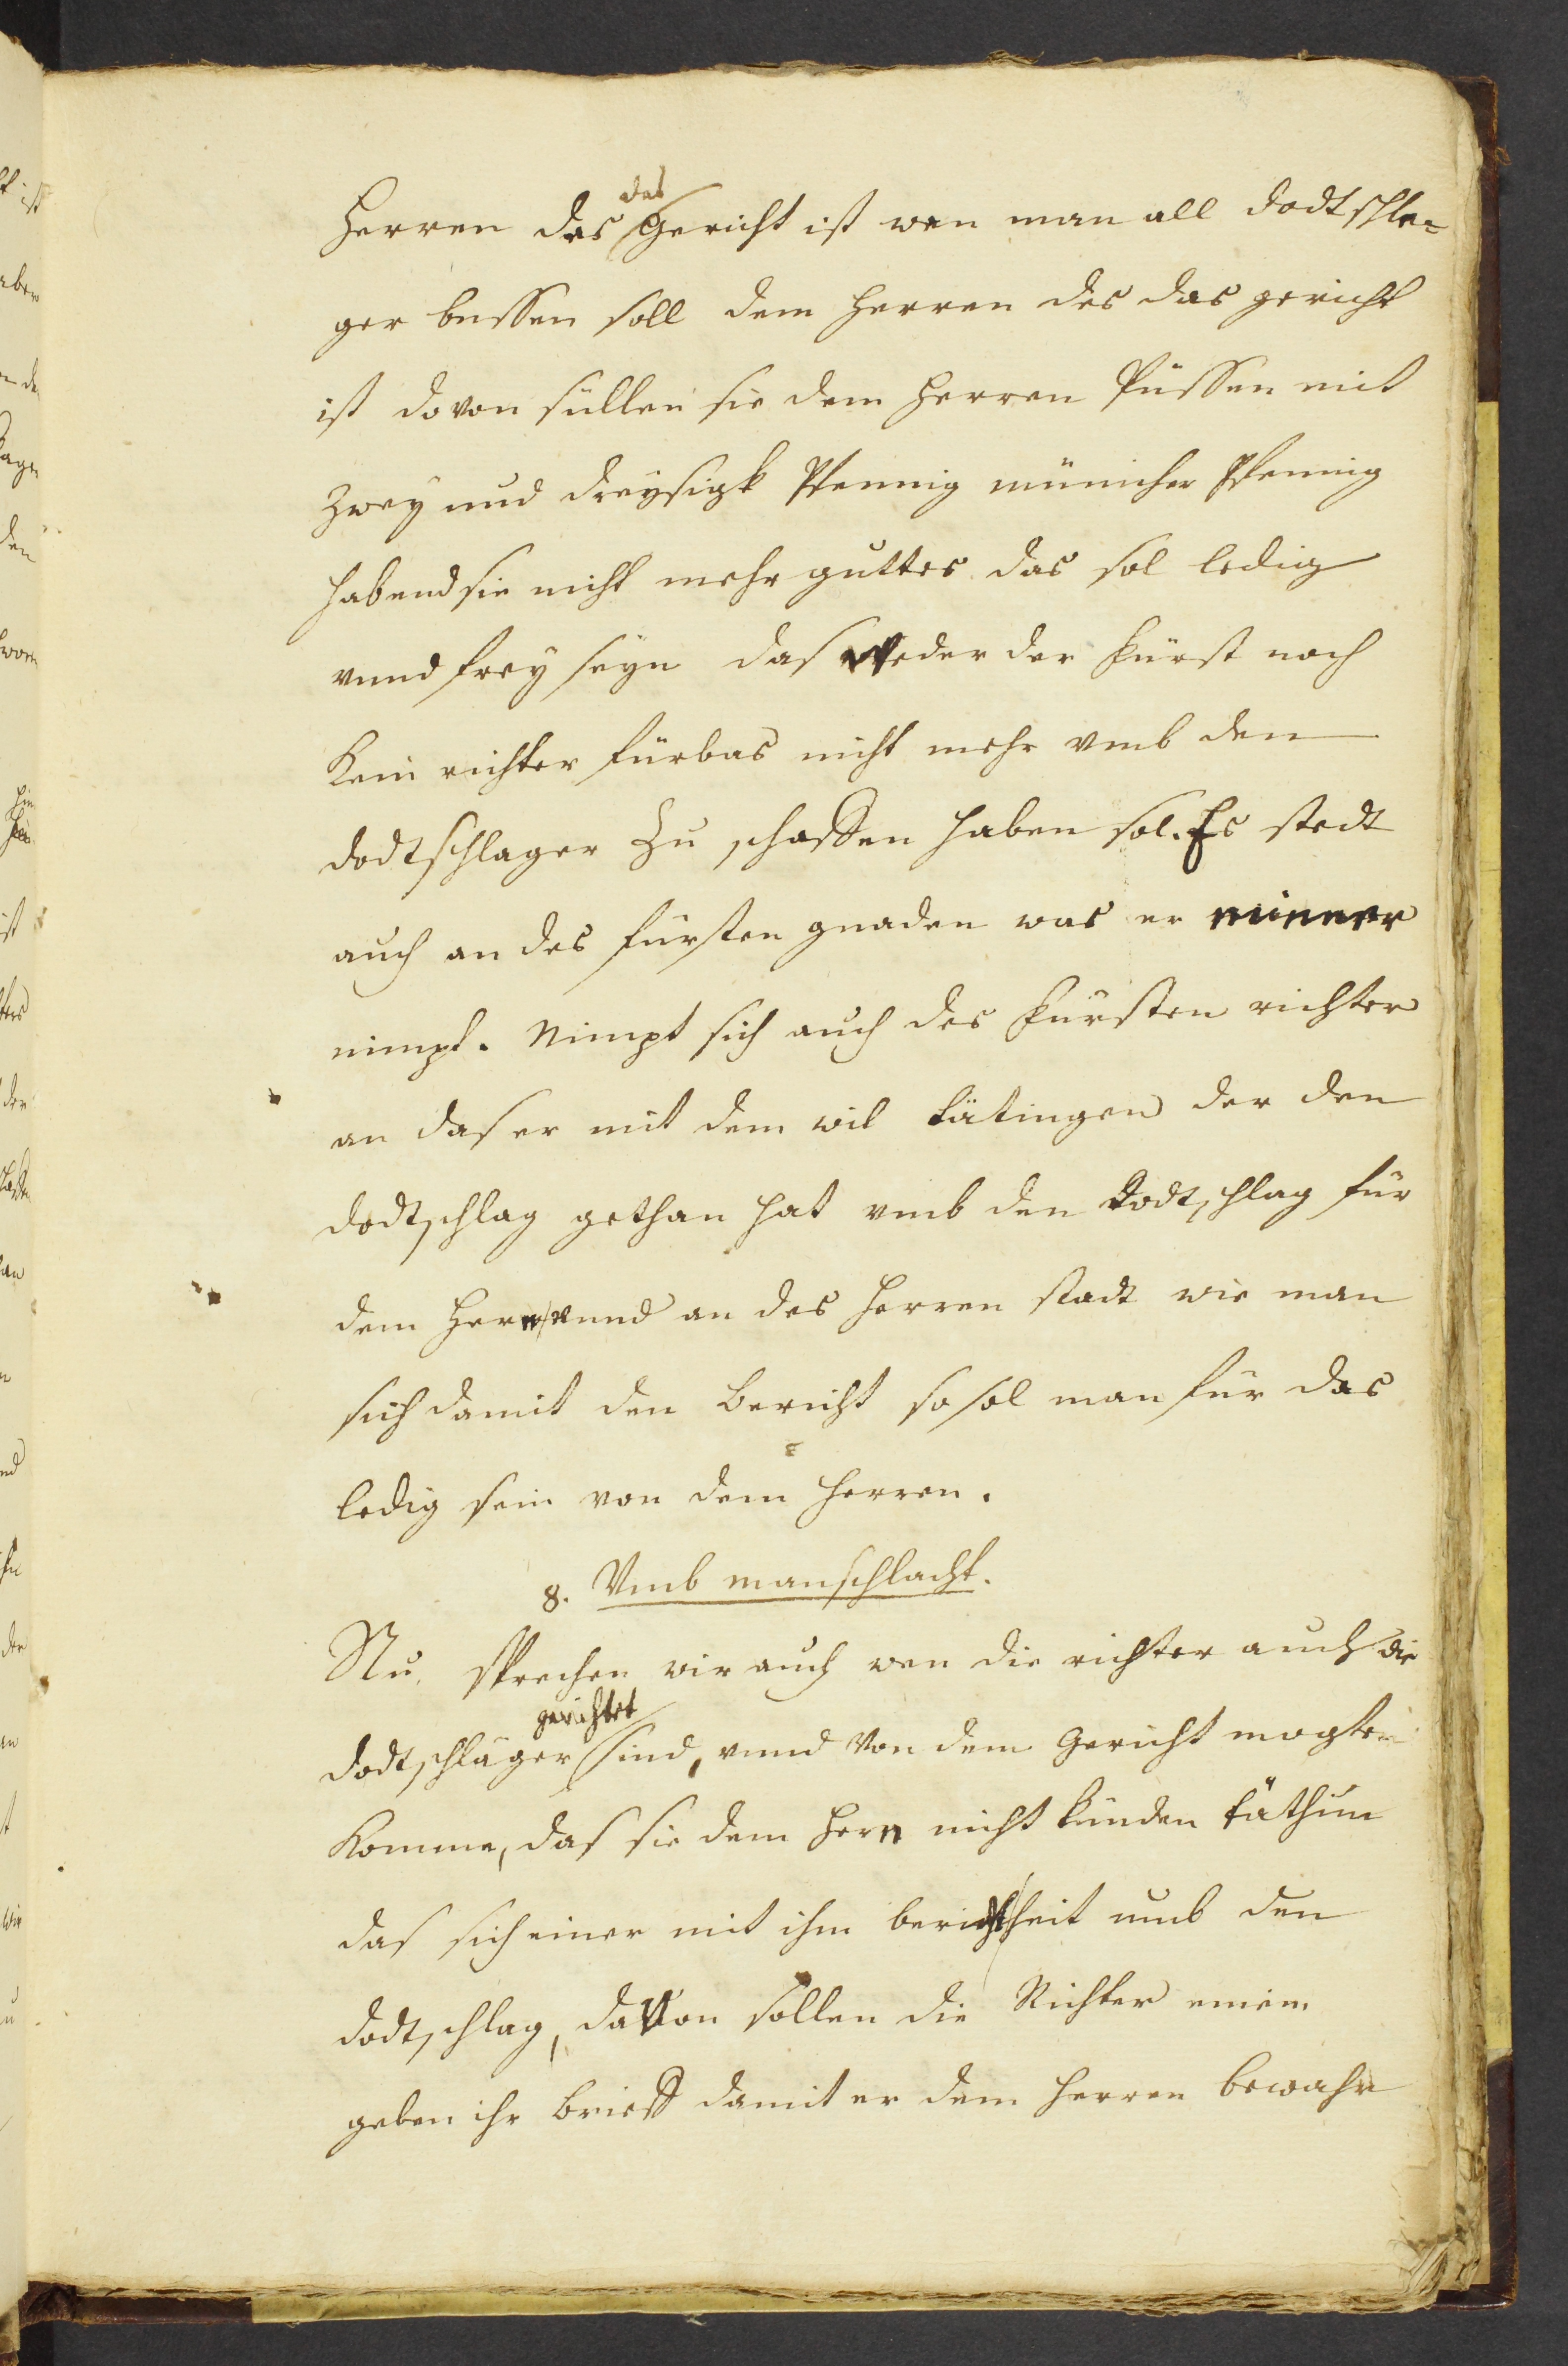 Herren des das Gericht ist wen man all dodtschle-
ger bessen soll dem Herren des das gericht
ist dovon süllen sie dem Herren Püssen mit
Zwey und dreysigk Pfennig münicher Pfening
habend sie nicht mehr guttes das sol ledig
vnnd frey seyn das Weder der Fürst noch
Kein richter fürbas nicht mehr vmb den
dodtschlager Zu schaffen haben sol. Es stedt
auch an des fürsten gnaden was er minner
nimpt. Nimpt sich auch des Fürsten richter
an das er mit dem wil tätingen der den
dodtschlag gethan hat vmb den Todtschlag für
dem Hern vnnd an des Herren stadt wie man
sich damit den bericht so sol man für das
ledig sein von dem Herren.
8. Vmb manschlacht.
Nu sprechen wir auch wen die richter auch die
dodtschläger gerichtet sind, vnnd Von dem Gericht mogten
Komme, das sie dem Hern nicht künden täthim
das sich einer mit ihm bericht heit umb den
dodtschlag, daVon sollen die Richter einem
geben ihr brieff damit er dem Herren bewahr